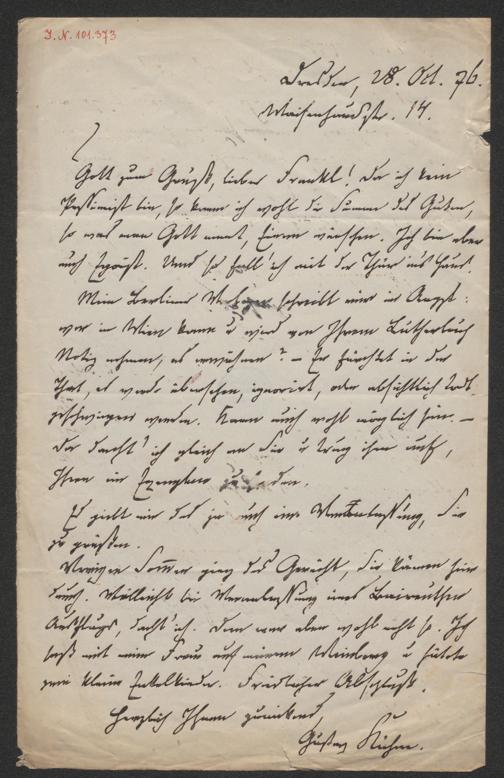 I. N. 101.373
Dresden, 28. Oct. 76.
Waisenhausstr. 14.
Gott zum Gruß, lieber Frankl! Da ich kein
Pessimist bin, so kann ich wohl die Summe des Guten,
so was man Gott nennt, Einem wünschen. Ich bin aber
auch Egoist. Und so fall' ich mit der Thür ins Haus.
Mein Berliner schreibt mir in Angst:
wer in Wien kann u wird von Ihrem Lutherbuch
Notiz nehmen, es erwähnen? – Er fürchtet in der
That, es werde übersehen, ignorirt, oder absichtlich todt-
geschwiegen werden. Kann auch wohl möglich sein. –
Da dacht' ich gleich an Sie u trug ihm auf,
Ihnen ein Exemplar zu senden.
Es giebt mir das ja auch eine Veranlassung, Sie
zu grüßen.
Vorigen Sommer ging das Gerücht, Sie kämen hier
durch. Vielleicht bei Veranlassung eines Baireuther
Ausflugs, dacht' ich. Dem war aber wohl nicht so. Ich
saß mit meiner Frau auf unserm Weinberg u hütete
zwei kleine Enkelkinder. Friedlicher Abschluß.
Herzlich Ihnen zuwinkend,
Gustav Kühne.